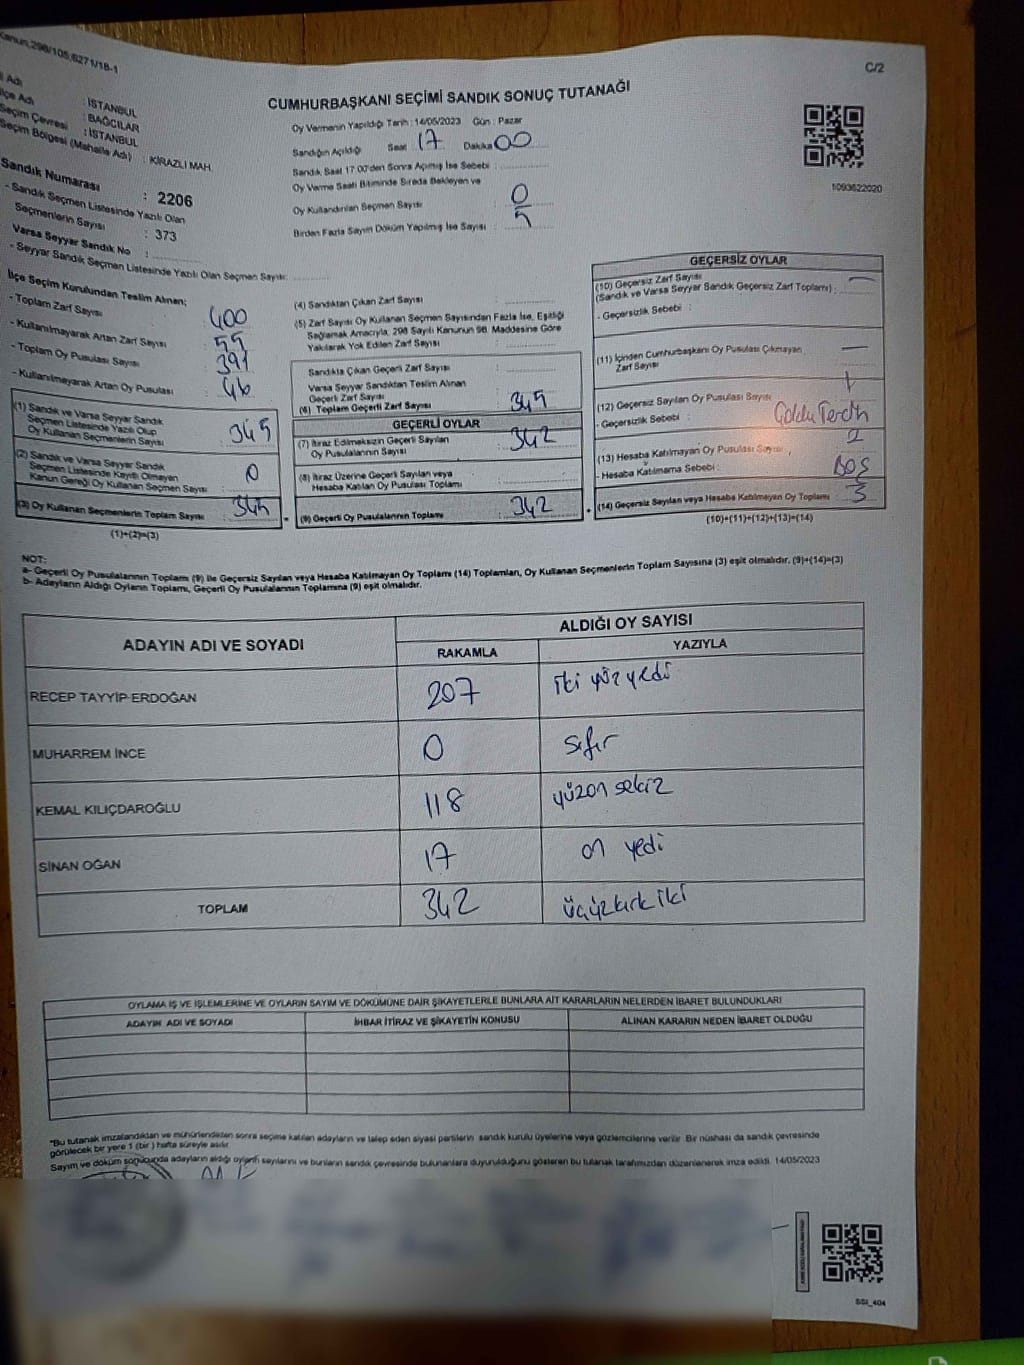 Kanun,298/105,6271/18-1
C/2
İl Adı : İSTANBUL
İlçe Adı : BAĞCILAR
Seçim Çevresi : İSTANBUL
Seçim Bölgesi (Mahalle Adı) : KİRAZLI MAH.
Sandık Numarası : 2206
- Sandık Seçmen Listesinde Yazılı Olan
Seçmenlerin Sayısı : 373
Varsa Seyyar Sandık No :
- Seyyar Sandık Seçmen Listesinde Yazılı Olan Seçmen Sayısı:
CUMHURBAŞKANI SEÇİMİ SANDIK SONUÇ TUTANAĞI
Oy Vermenin Yapıldığı Tarih : 14/05/2023 Gün : Pazar
Sandığın Açıldığı Saat 17 Dakika 00
Sandık Saat 17.00'den Sonra Açılmış İse Sebebi :
Oy Verme Saati Bitiminde Sırada Bekleyen ve
Oy Kullandırılan Seçmen Sayısı : 0
Birden Fazla Sayım Döküm Yapılmış İse Sayısı : 5
1093622020
İlçe Seçim Kurulundan Teslim Alınan;
- Toplam Zarf Sayısı : 400
- Kullanılmayarak Artan Zarf Sayısı : 55
- Toplam Oy Pusulası Sayısı : 391
- Kullanılmayarak Artan Oy Pusulası : 46
(1) Sandık ve Varsa Seyyar Sandık
Seçmen Listesinde Yazılı Olup
Oy Kullanan Seçmenlerin Sayısı : 345
(2) Sandık ve Varsa Seyyar Sandık
Seçmen Listesinde Kayıtlı Olmayan
Kanun Gereği Oy Kullanan Seçmen Sayısı : 0
(3) Oy Kullanan Seçmenlerin Toplam Sayısı : 345
(1)+(2)=(3)
(4) Sandıktan Çıkan Zarf Sayısı :
(5) Zarf Sayısı Oy Kullanan Seçmen Sayısından Fazla İse, Eşitliği
Sağlamak Amacıyla, 298 Sayılı Kanunun 98. Maddesine Göre
Yakılarak Yok Edilen Zarf Sayısı :
Sandıkta Çıkan Geçerli Zarf Sayısı :
Varsa Seyyar Sandıktan Teslim Alınan
Geçerli Zarf Sayısı :
(6) Toplam Geçerli Zarf Sayısı : 345
GEÇERLİ OYLAR
(7) İtiraz Edilmeksizin Geçerli Sayılan
Oy Pusulasının Sayısı : 342
(8) İtiraz Üzerine Geçerli Sayılan veya
Hesaba Katılan Oy Pusulası Toplamı :
(9) Geçerli Oy Pusulalarının Toplamı : 342
GEÇERSİZ OYLAR
(10) Geçersiz Zarf Sayısı
(Sandık ve Varsa Seyyar Sandık Geçersiz Zarf Toplamı) : —
- Geçersizlik Sebebi :
(11) İçinden Cumhurbaşkanı Oy Pusulası Çıkmayan
Zarf Sayısı —
(12) Geçersiz Sayılan Oy Pusulası Sayısı 1
- Geçersizlik Sebebi :
(13) Hesaba Katılmayan Oy Pusulası Sayısı : 2
- Hesaba Katılmama Sebebi : BOŞ
(14) Geçersiz Sayılan veya Hesaba Katılmayan Oy Toplamı 3
(10)+(11)+(12)+(13)=(14)
NOT:
a- Geçerli Oy Pusulalarının Toplamı (9) ile Geçersiz Sayılan veya Hesaba Katılmayan Oy Toplamı (14) Toplamları, Oy Kullanan Seçmenlerin Toplam Sayısına (3) eşit olmalıdır. (9)+(14)=(3)
b- Adayların Aldığı Oyların Toplamı, Geçerli Oy Pusulalarının Toplamına (9) eşit olmalıdır.
ADAYIN ADI VE SOYADI ALDIĞI OY SAYISI
RAKAMLA YAZIYLA
RECEP TAYYİP ERDOĞAN 207 iki yüz yedi
MUHARREM İNCE 0 sıfır
KEMAL KILIÇDAROĞLU 118 yüzon sekiz
SİNAN OĞAN 17 on yedi
TOPLAM 342 üçyüzkırk iki
OYLAMA İŞ VE İŞLEMLERİNE VE OYLARIN SAYIM VE DÖKÜMÜNE DAİR ŞİKAYETLERLE BUNLARA AİT KARARLARIN NELERDEN İBARET BULUNDUKLARI
ADAYIN ADI VE SOYADI İHBAR İTİRAZ VE ŞİKAYETİN KONUSU ALINAN KARARIN NEDEN İBARET OLDUĞU
"Bu tutanak imzalandıktan ve mühürlendikten sonra seçime katılan adayların ve talep eden siyasi partilerin sandık kurulu üyelerine veya gözlemcilerine verilir. Bir nüshası da sandık çevresinde
görülecek bir yere 1 (bir) hafta süreyle asılır.
Sayım ve döküm sonucunda adayların aldığı oyların sayılarını ve bunların sandık çevresinde bulunanlara duyurulduğunu gösteren bu tutanak tarafımızdan düzenlenerek imza edildi. 14/05/2023
SSI_404